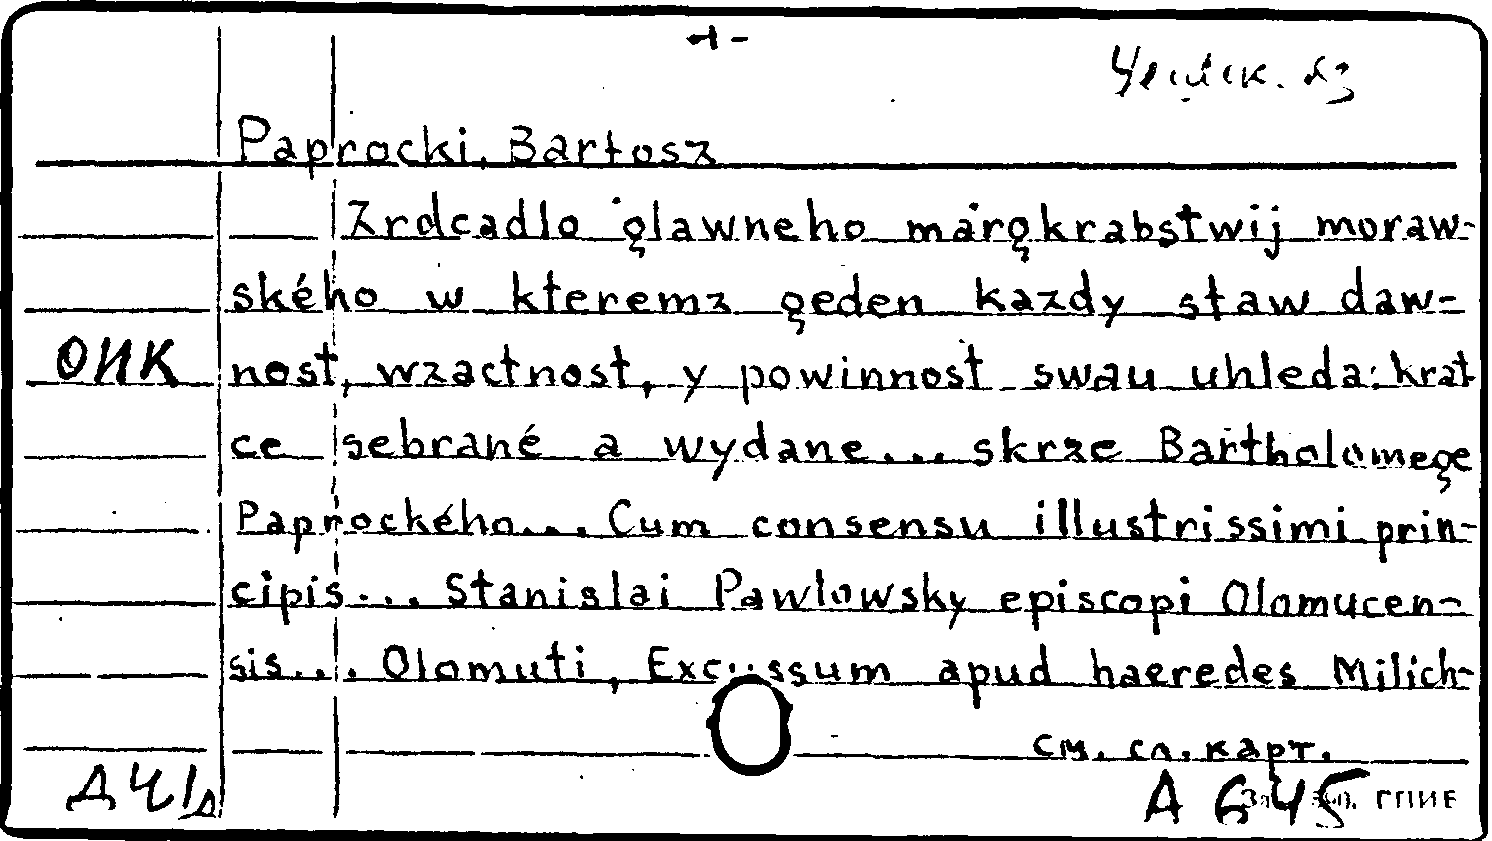 -1-
Чешск. яз
Paprocki, Bartosz
Zrdcadlo ġlawneho márgkrabstwij moraw-
ského w kteremz geden kazdy staw daw-
ОИК nost, wzactnost, y powinnost swau uhleda: krat
ce sebrané a wydane... skrze Bartholomege
Paprockého... Cum consensu illustrissimi prin-
cipis... Stanislai Pawlowsky episcopi Olomucen-
sis... Olomuti, Excussum apud haeredes Milich-
см. сл. карт.
Д41д А 645